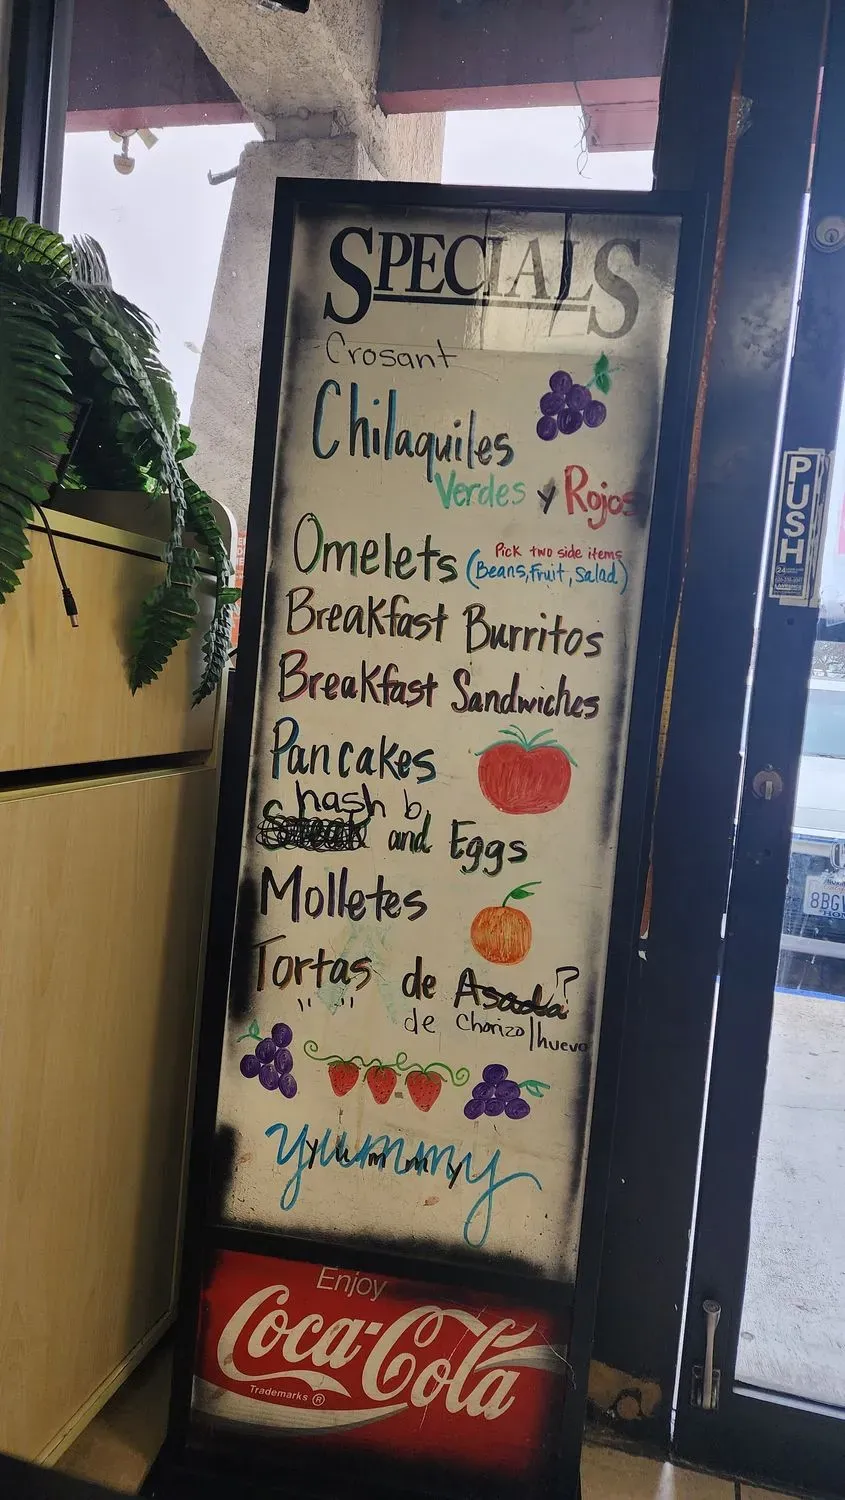 SPECIALS
Crosant
Chilaquiles
Verdes y Rojos
Omelets (Pick two side items
Beans, Fruit, Salad)
Breakfast Burritos
Breakfast Sandwiches
Pancakes
hash b
and Eggs
Molletes
Tortas de Asada?
de Chorizo/huevo
yummy
yummy
Enjoy
Coca-Cola
Trademarks ®
PUSH